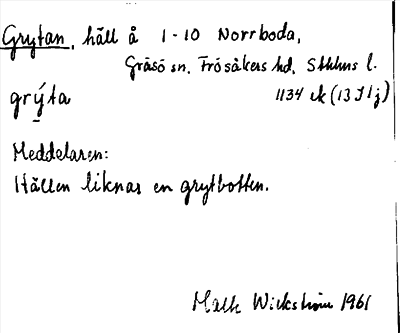 Grytan, häll å 1-10 Norrboda,
Gräsö sn. Frösåkers hd, Sthlms l.
grýta 1134 ek (13 I 1j)
Meddelaren:
Hällen liknar en grytbotten.
Wickström 1961